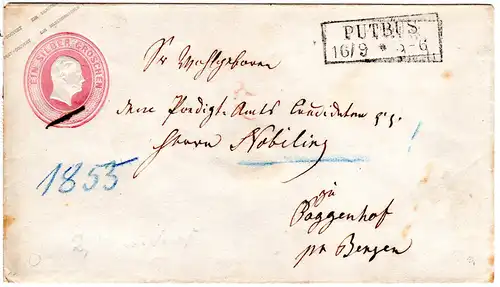 EIN SILBER GROSCHEN
PUTBUS
16/9 * 5-6
Sr Wohlgeboren
dem Predigt-Amts Candidaten
Herrn Nobiling
1855
zu
Poggenhof
pr Bergen